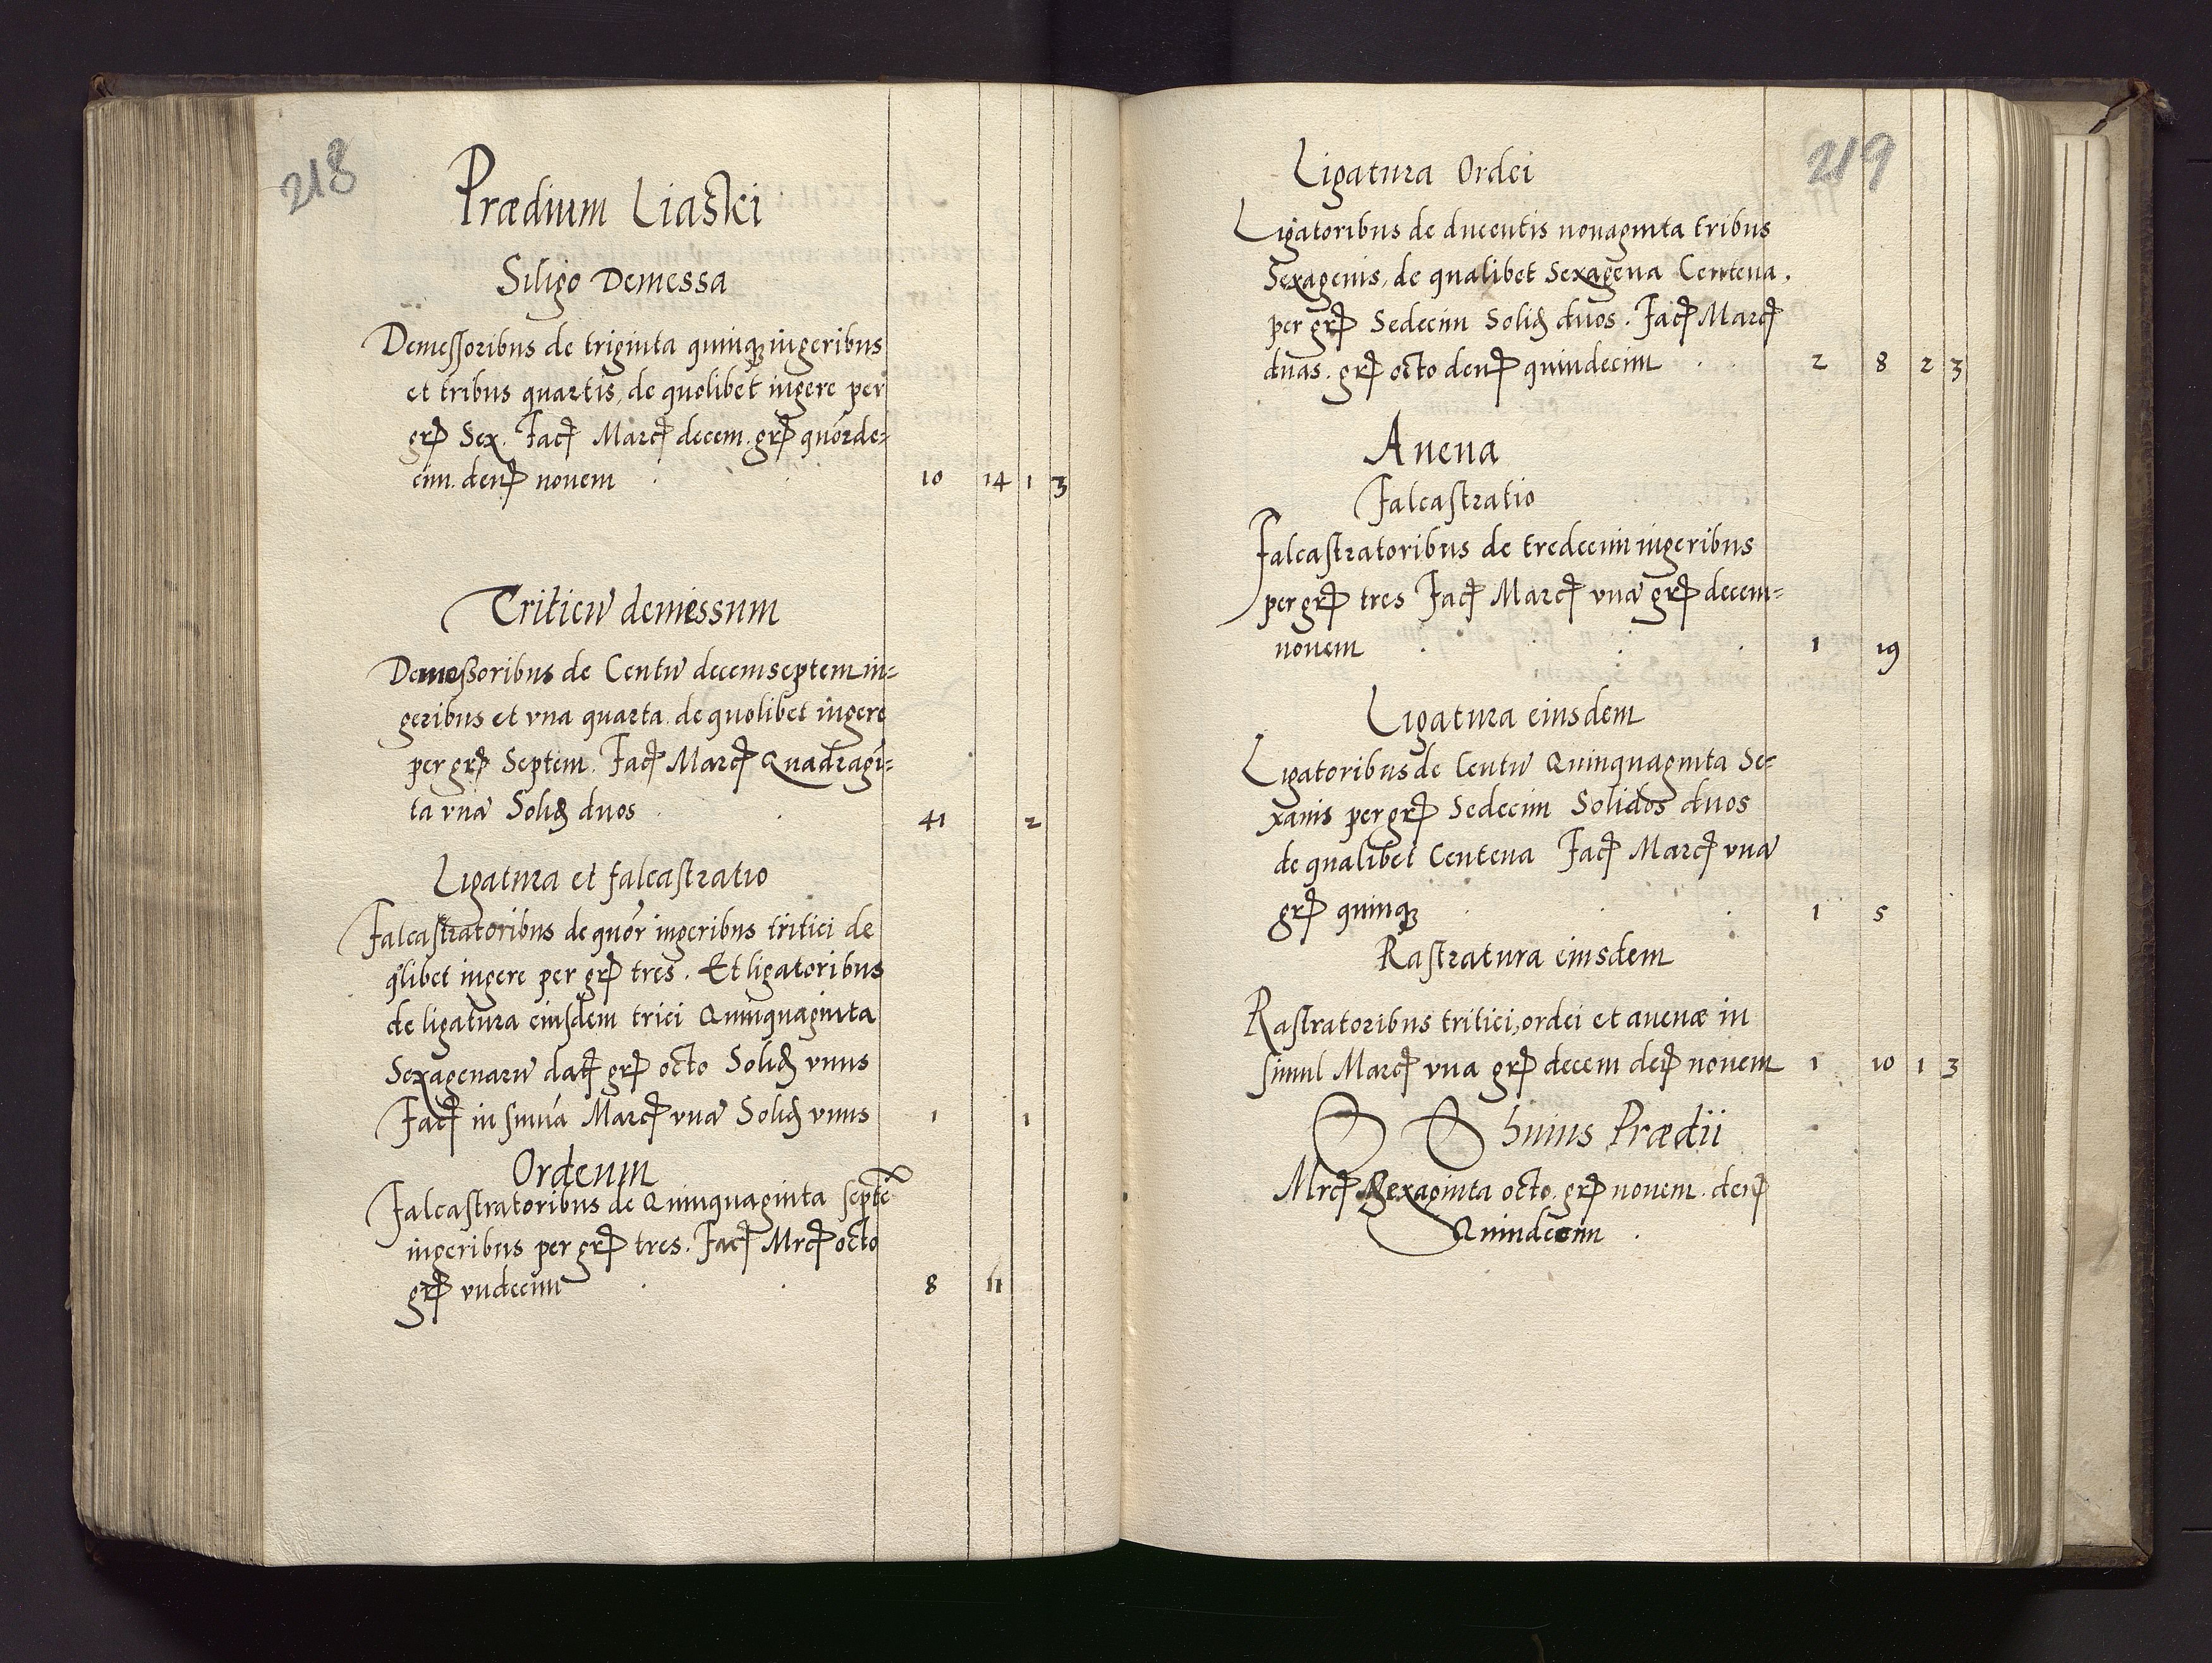 218
Prædium Liaski
Siligo Demessa
Demessoribus de triginta quinqꝫ iugeribus
et tribus quartis, de quolibet iugere per
grꝭ Sex. Facꝭ Marcꝭ decem. grꝭ quórde=
cim. denꝭ nouem 10 14 1 3
Triticũ demessum
Demessoribus de Centũ decemseptem iu=
geribus et vna quarta. de quolibet iugere
per grꝭ Septem. Facꝭ Marcꝭ Quadragĩ=
ta vnã Solidꝭ duos 41 2
Ligatura et falcastratio
Falcastratoribus de quór iugeribus tritici de
qlibet iugere per grꝭ tres. Et ligatoribus
de ligatura eiusdem trici Quinquaginta
Sexagenarũ datꝭ grꝭ octo Solidꝭ vnus
Facꝭ in sũuã Marcꝭ vnã Solidꝭ vnus 1 1
Ordeum
Falcastratoribus de Quinquaginta septẽ
iugeribus per grꝭ tres. Facꝭ Mrcꝭ octo
grꝭ vndecim 8 11
219
Ligatura Ordei
Ligatoribus de ducentis nonaginta tribus
Sexagenis, de qualibet Sexagena Centena.
per grꝭ Sedecim Solidꝭ duos. Facꝭ Marcꝭ
duas. grꝭ octo denꝭ quindecim 2 8 2 3
Auena
Falcastratio
Falcastratoribus de tredecim iugeribus
per grꝭ tres Facꝭ Marcꝭ vnã grꝭ decem=
nouem 1 19
Ligatura eiusdem
Ligatoribus de Centũ Quinquaginta Se=
xanis per grꝭ Sedecim Solidos duos
de qualibet Centena Facꝭ Marcꝭ vnã
grꝭ quinqꝫ 1 5
Rastratura eiusdem
Rastratoribus tritici, ordei et auenæ in
simul Marcꝭ vna grꝭ decem deꝭ nouem 1 10 1 3
huius Prædii
Mrcꝭ Sexaginta octo. grꝭ nouem. denꝭ
Quindecim